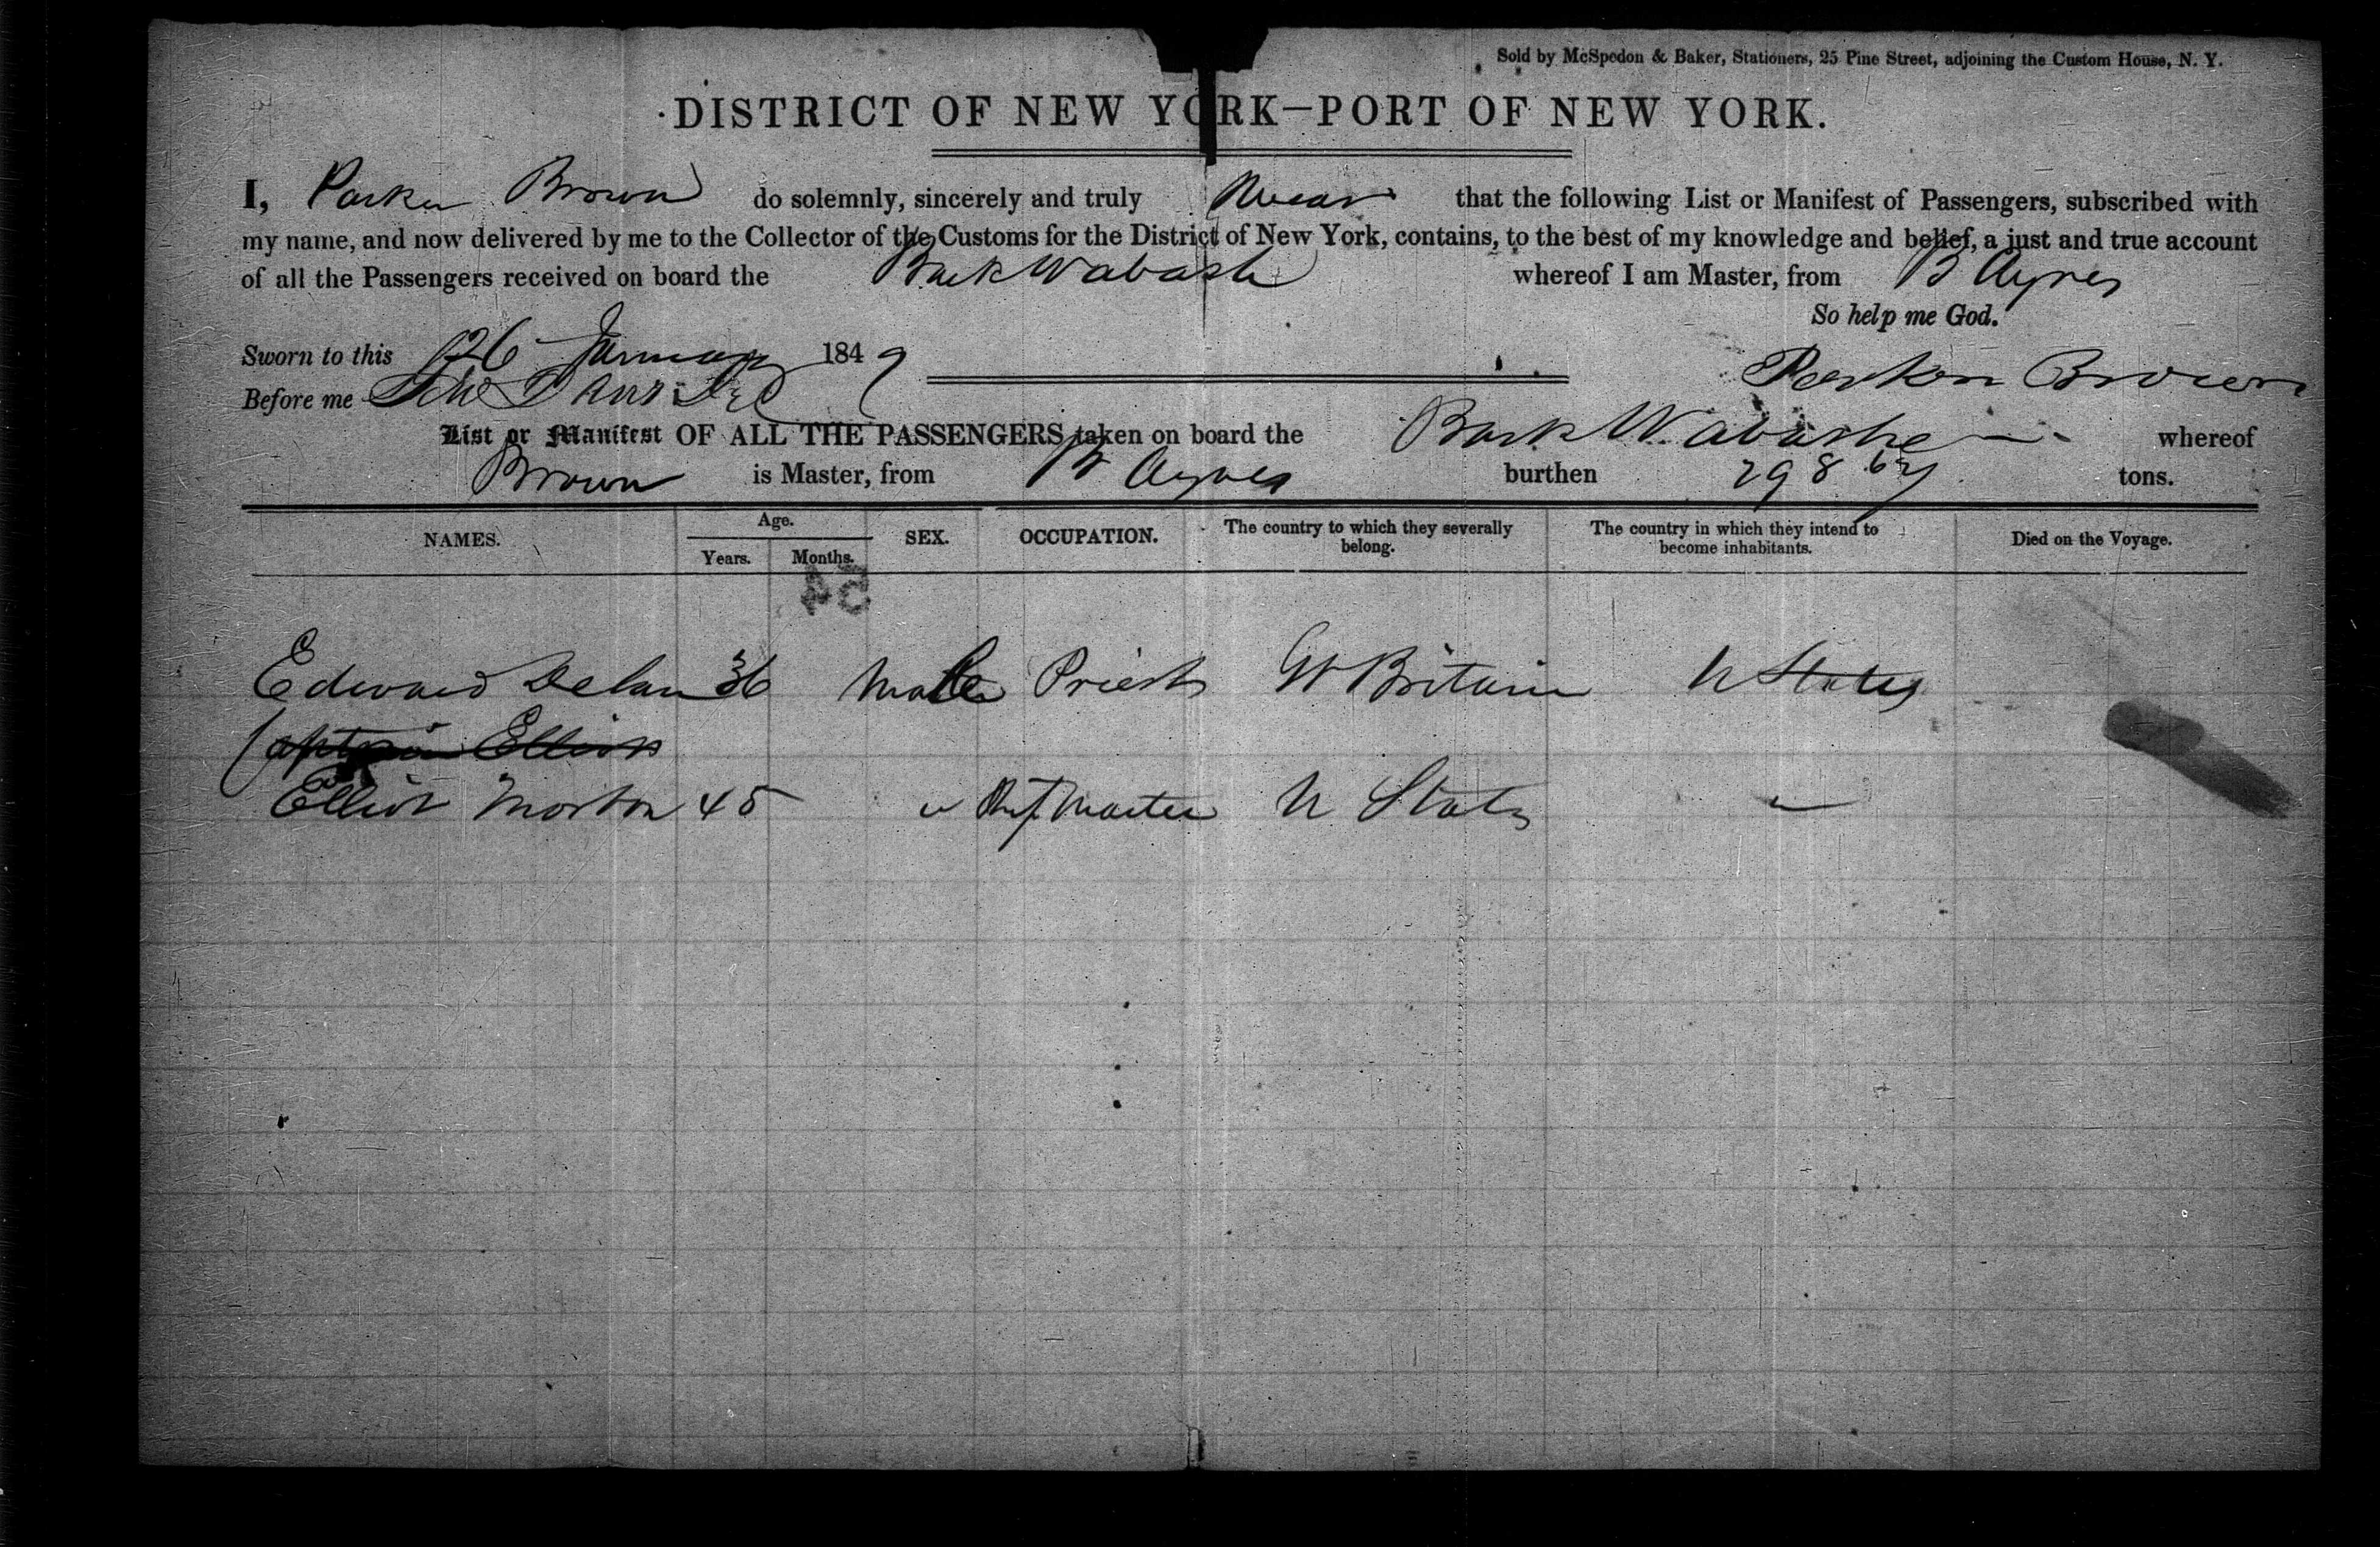 Sold by McSpedon & Baker, Stationers, 25 Pine Street, adjoining the Custom House, N. Y.
DISTRICT OF NEW YORK—PORT OF NEW YORK.
I, Parker Brown do solemnly, sincerely and truly swear that the following List or Manifest of Passengers, subscribed with
my name, and now delivered by me to the Collector of the Customs for the District of New York, contains, to the best of my knowledge and belief, a just and true account
of all the Passengers received on board the Bark Wabash whereof I am Master, from B Ayres
So help me God.
Sworn to this 26 January 1849
Parker Brown
Before me
List or Manifest OF ALL THE PASSENGERS taken on board the Bark Wabashe whereof
Brown is Master, from B Ayres burthen 298 tons.
NAMES. Age. SEX. OCCUPATION. The country to which they severally belong. The country in which they intend to become inhabitants. Died on the Voyage.
Years. Months.
54
Edward Delan 36 Male Priest Gt Britain U States
Captain Elliot
Elliot Morton 45 " Ship Master U States "